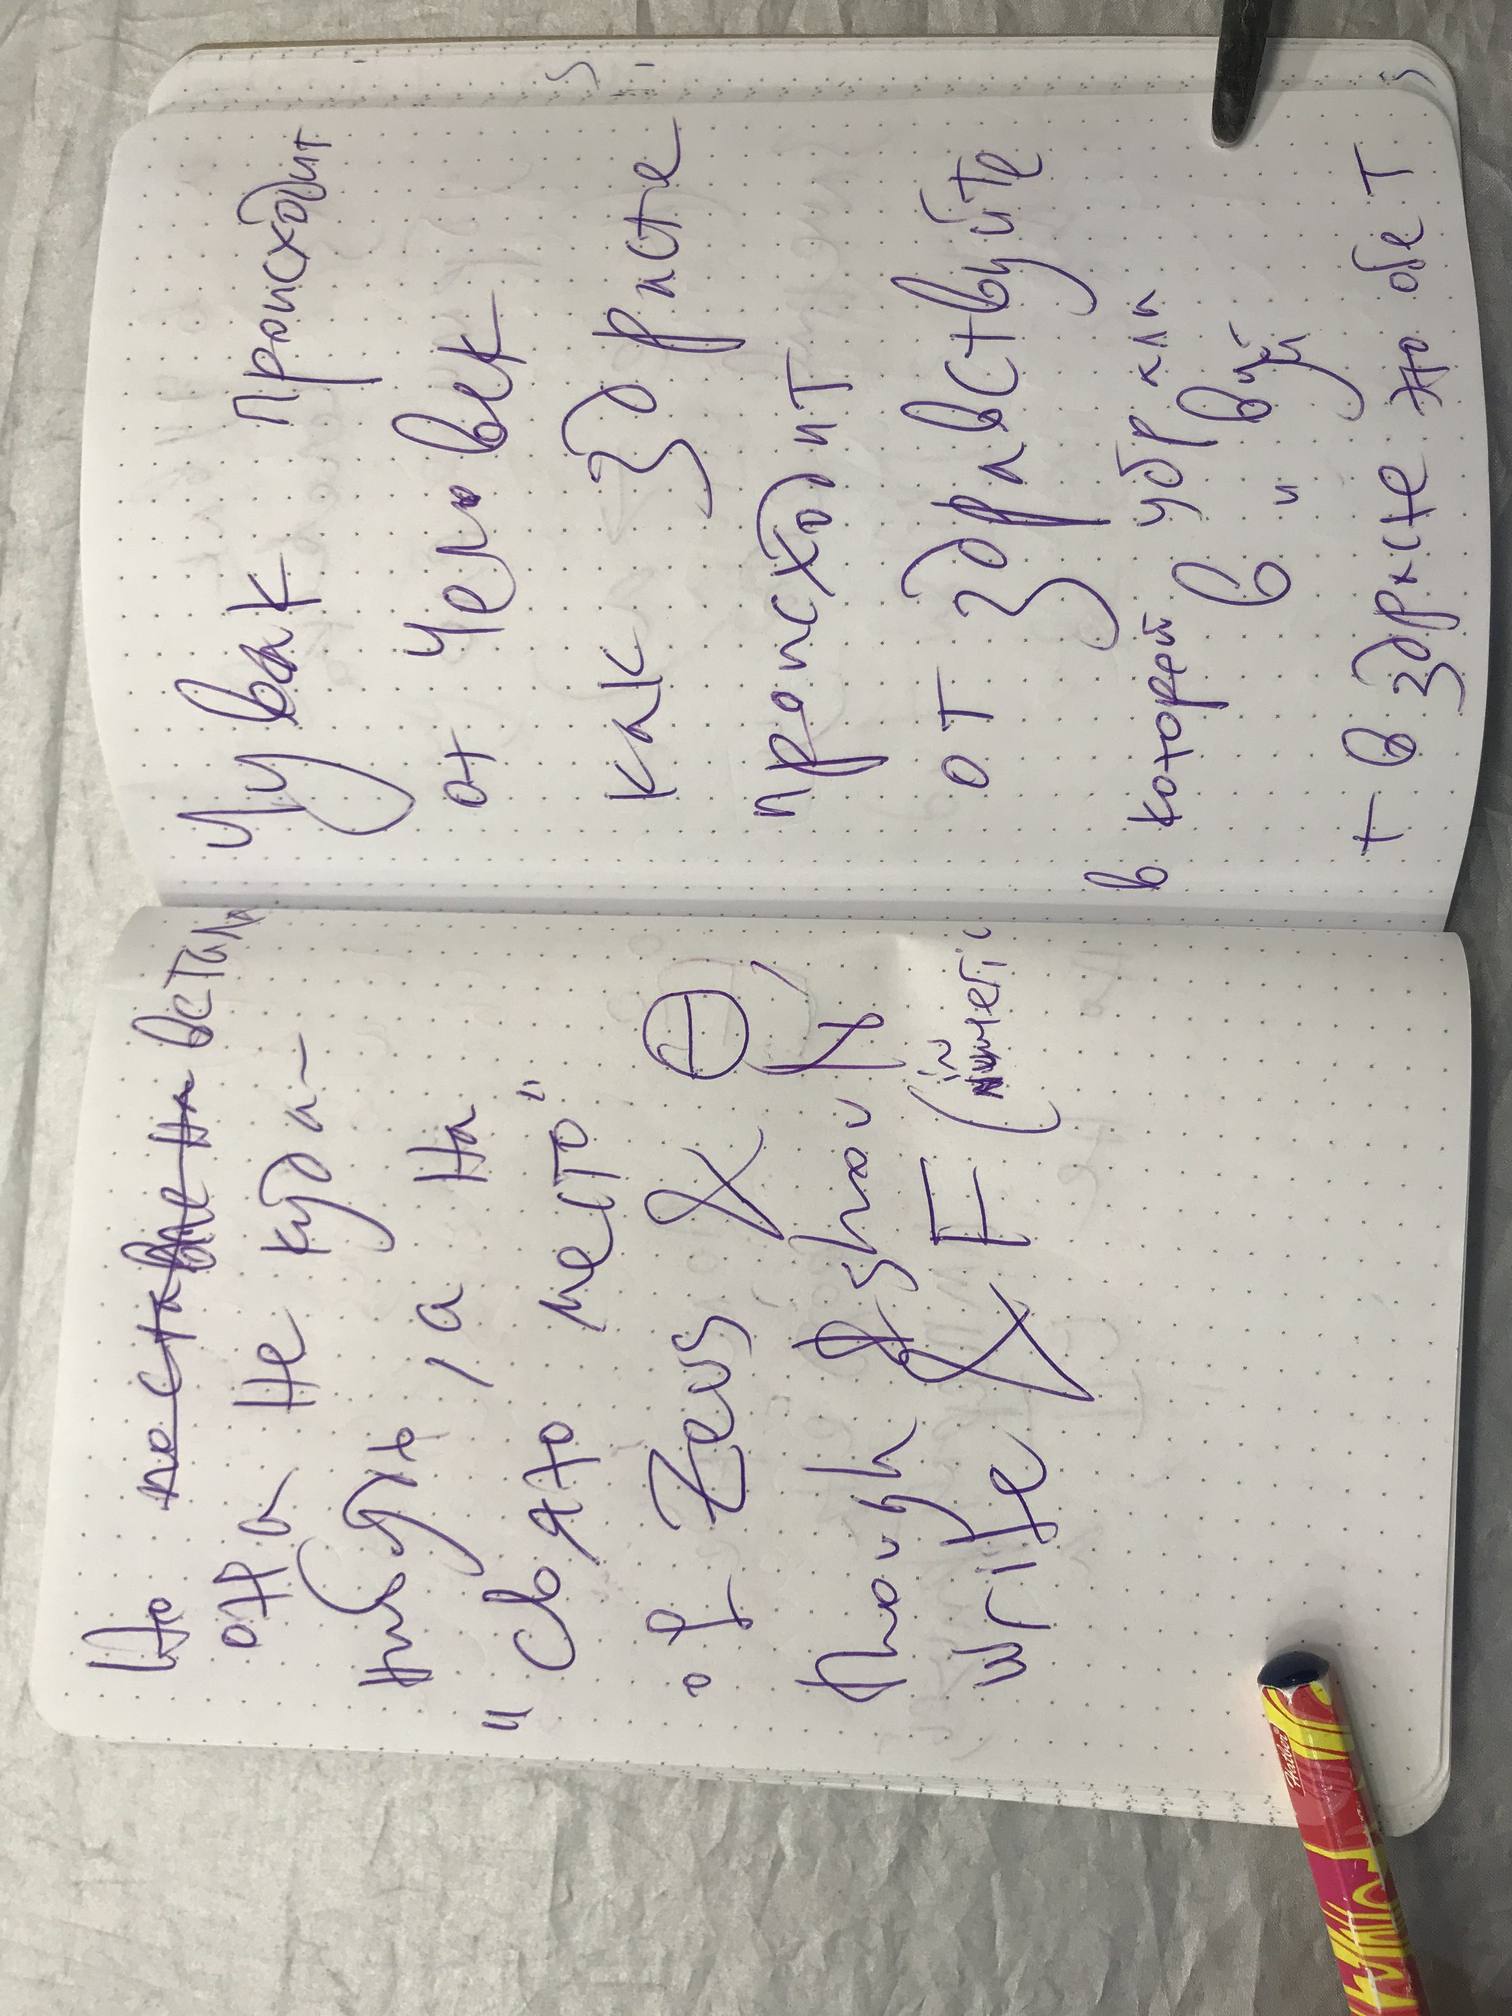 Но поставлена встала
она не куда-
нибудь, а на
"свято место"
of Zeus & Θ
though & shou
write & F (in numeric
Чувак происходит
от человек
как здрасте
происходит
от здравствуйте
в которой убрали
в " вуй
+ в здрасте но обе т
Hatber